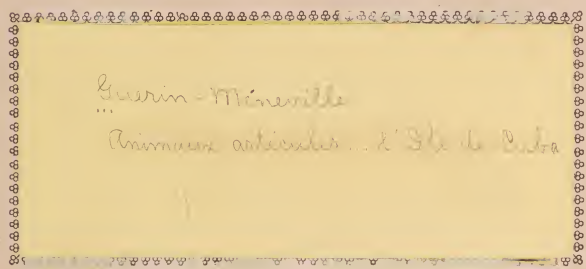 Guerin-Méneville
Animaux articulés.. l'Ile de Cuba